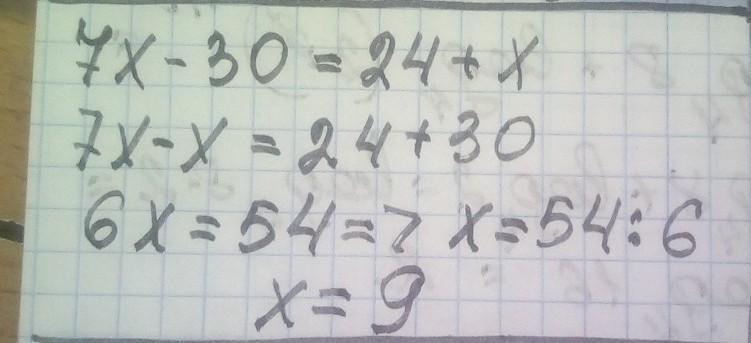 7x - 30 = 24 + x
7x - x = 24 + 30
6x = 54 => x = 54 : 6
x = 9